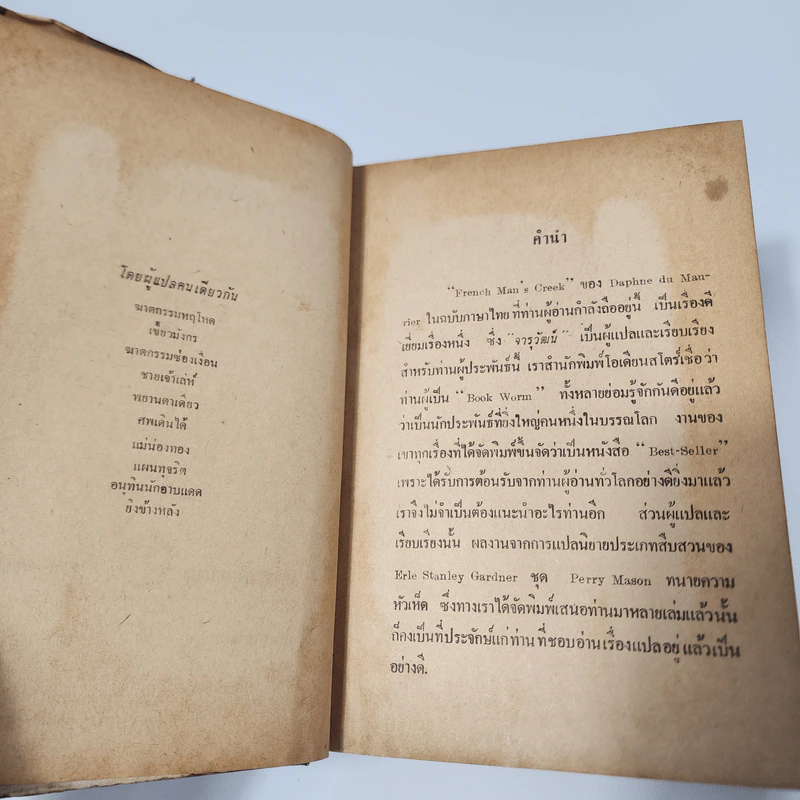 โดยผู้แปลคนเดียวกัน
ฆาตกรรมหฤโหด
เขี้ยวมังกร
ฆาตกรรมซ่องเงื่อน
ชายเจ้าเล่ห์
พยานตาเดียว
ศพเดินได้
แม่น่องทอง
แผนทุจริต
อนุทินนักอาบแดด
ยิงข้างหลัง
คำนำ
"French Man's Creek" ของ Daphne du Man-
rier ในฉบับภาษาไทย ที่ท่านผู้อ่านกำลังถืออยู่นี้ เป็นเรื่องดี
เยี่ยมเรื่องหนึ่ง ซึ่ง "จารุวัฒน์" เป็นผู้แปลและเรียบเรียง
สำหรับท่านผู้ประพันธ์นี้ เราสำนักพิมพ์โอเดียนสโตร์เชื่อว่า
ท่านผู้เป็น "Book Worm" ทั้งหลายย่อมรู้จักกันดีอยู่แล้ว
ว่าเป็นนักประพันธ์ที่ยิ่งใหญ่คนหนึ่งในบรรณโลก งานของ
เขาทุกเรื่องที่ได้จัดพิมพ์ขึ้นจัดว่าเป็นหนังสือ "Best-Seller"
เพราะได้รับการต้อนรับจากท่านผู้อ่านทั่วโลกอย่างดียิ่งมาแล้ว
เราจึงไม่จำเป็นต้องแนะนำอะไรท่านอีก ส่วนผู้แปลและ
เรียบเรียงนั้น ผลงานจากการแปลนิยายประเภทสืบสวนของ
Erle Stanley Gardner ชุด Perry Mason ทนายความ
หัวเห็ด ซึ่งทางเราได้จัดพิมพ์เสนอท่านมาหลายเล่มแล้วนั้น
ก็คงเป็นที่ประจักษ์แก่ท่าน ที่ชอบอ่านเรื่องแปลอยู่ แล้วเป็น
อย่างดี.